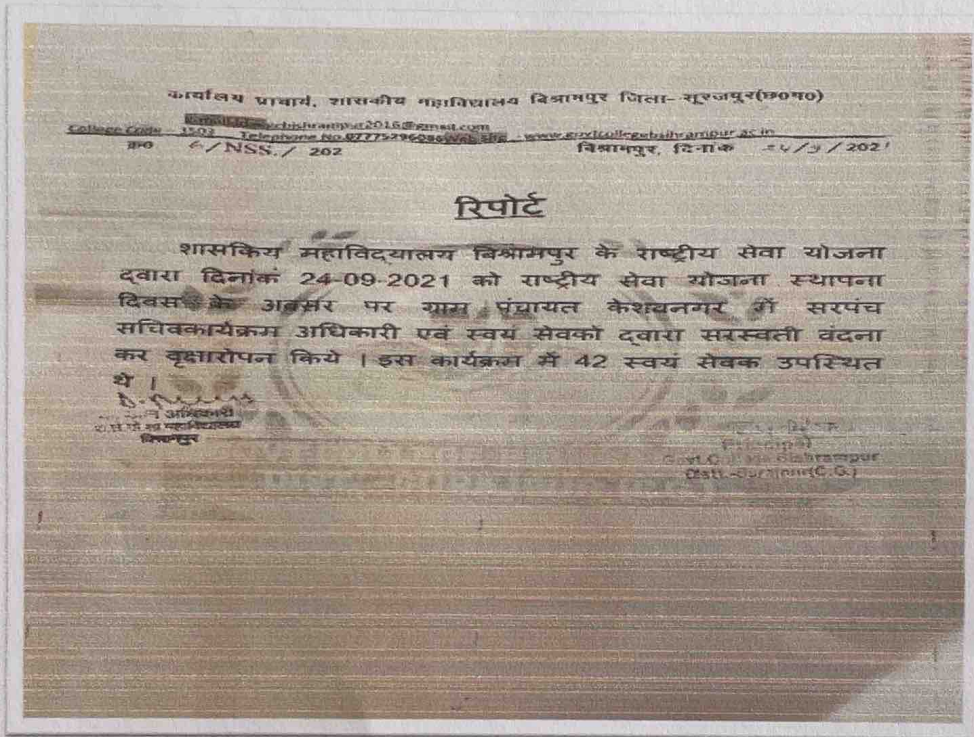 कार्यालय प्राचार्य, शासकीय महाविद्यालय बिश्रामपुर जिला- सूरजपुर(छ०ग०)
College Code - 3503 Telephone No.07775296086 - www.govtcollegebsihrampur.ac.in
क्र० 6/NSS./ 202 बिश्रामपुर, दिनांक 24/9/2021
रिपोर्ट
शासकिय महाविद्यालय बिश्रामपुर के राष्ट्रीय सेवा योजना
द्वारा दिनांकं 24-09-2021 को राष्ट्रीय सेवा योजना स्थापना
दिवस के अवसर पर ग्राम पंचायत केशवनगर में सरपंच
सचिवकार्यक्रम अधिकारी एवं स्वयं सेवको द्वारा सरस्वती वंदना
कर वृक्षारोपन किये । इस कार्यक्रम में 42 स्वयं सेवक उपस्थित
थे ।
अधिकारी
महाविद्यालय
बिश्रामपुर
(Principal)
Govt.College Bishrampur
Distt.-Surajpur(C.G.)